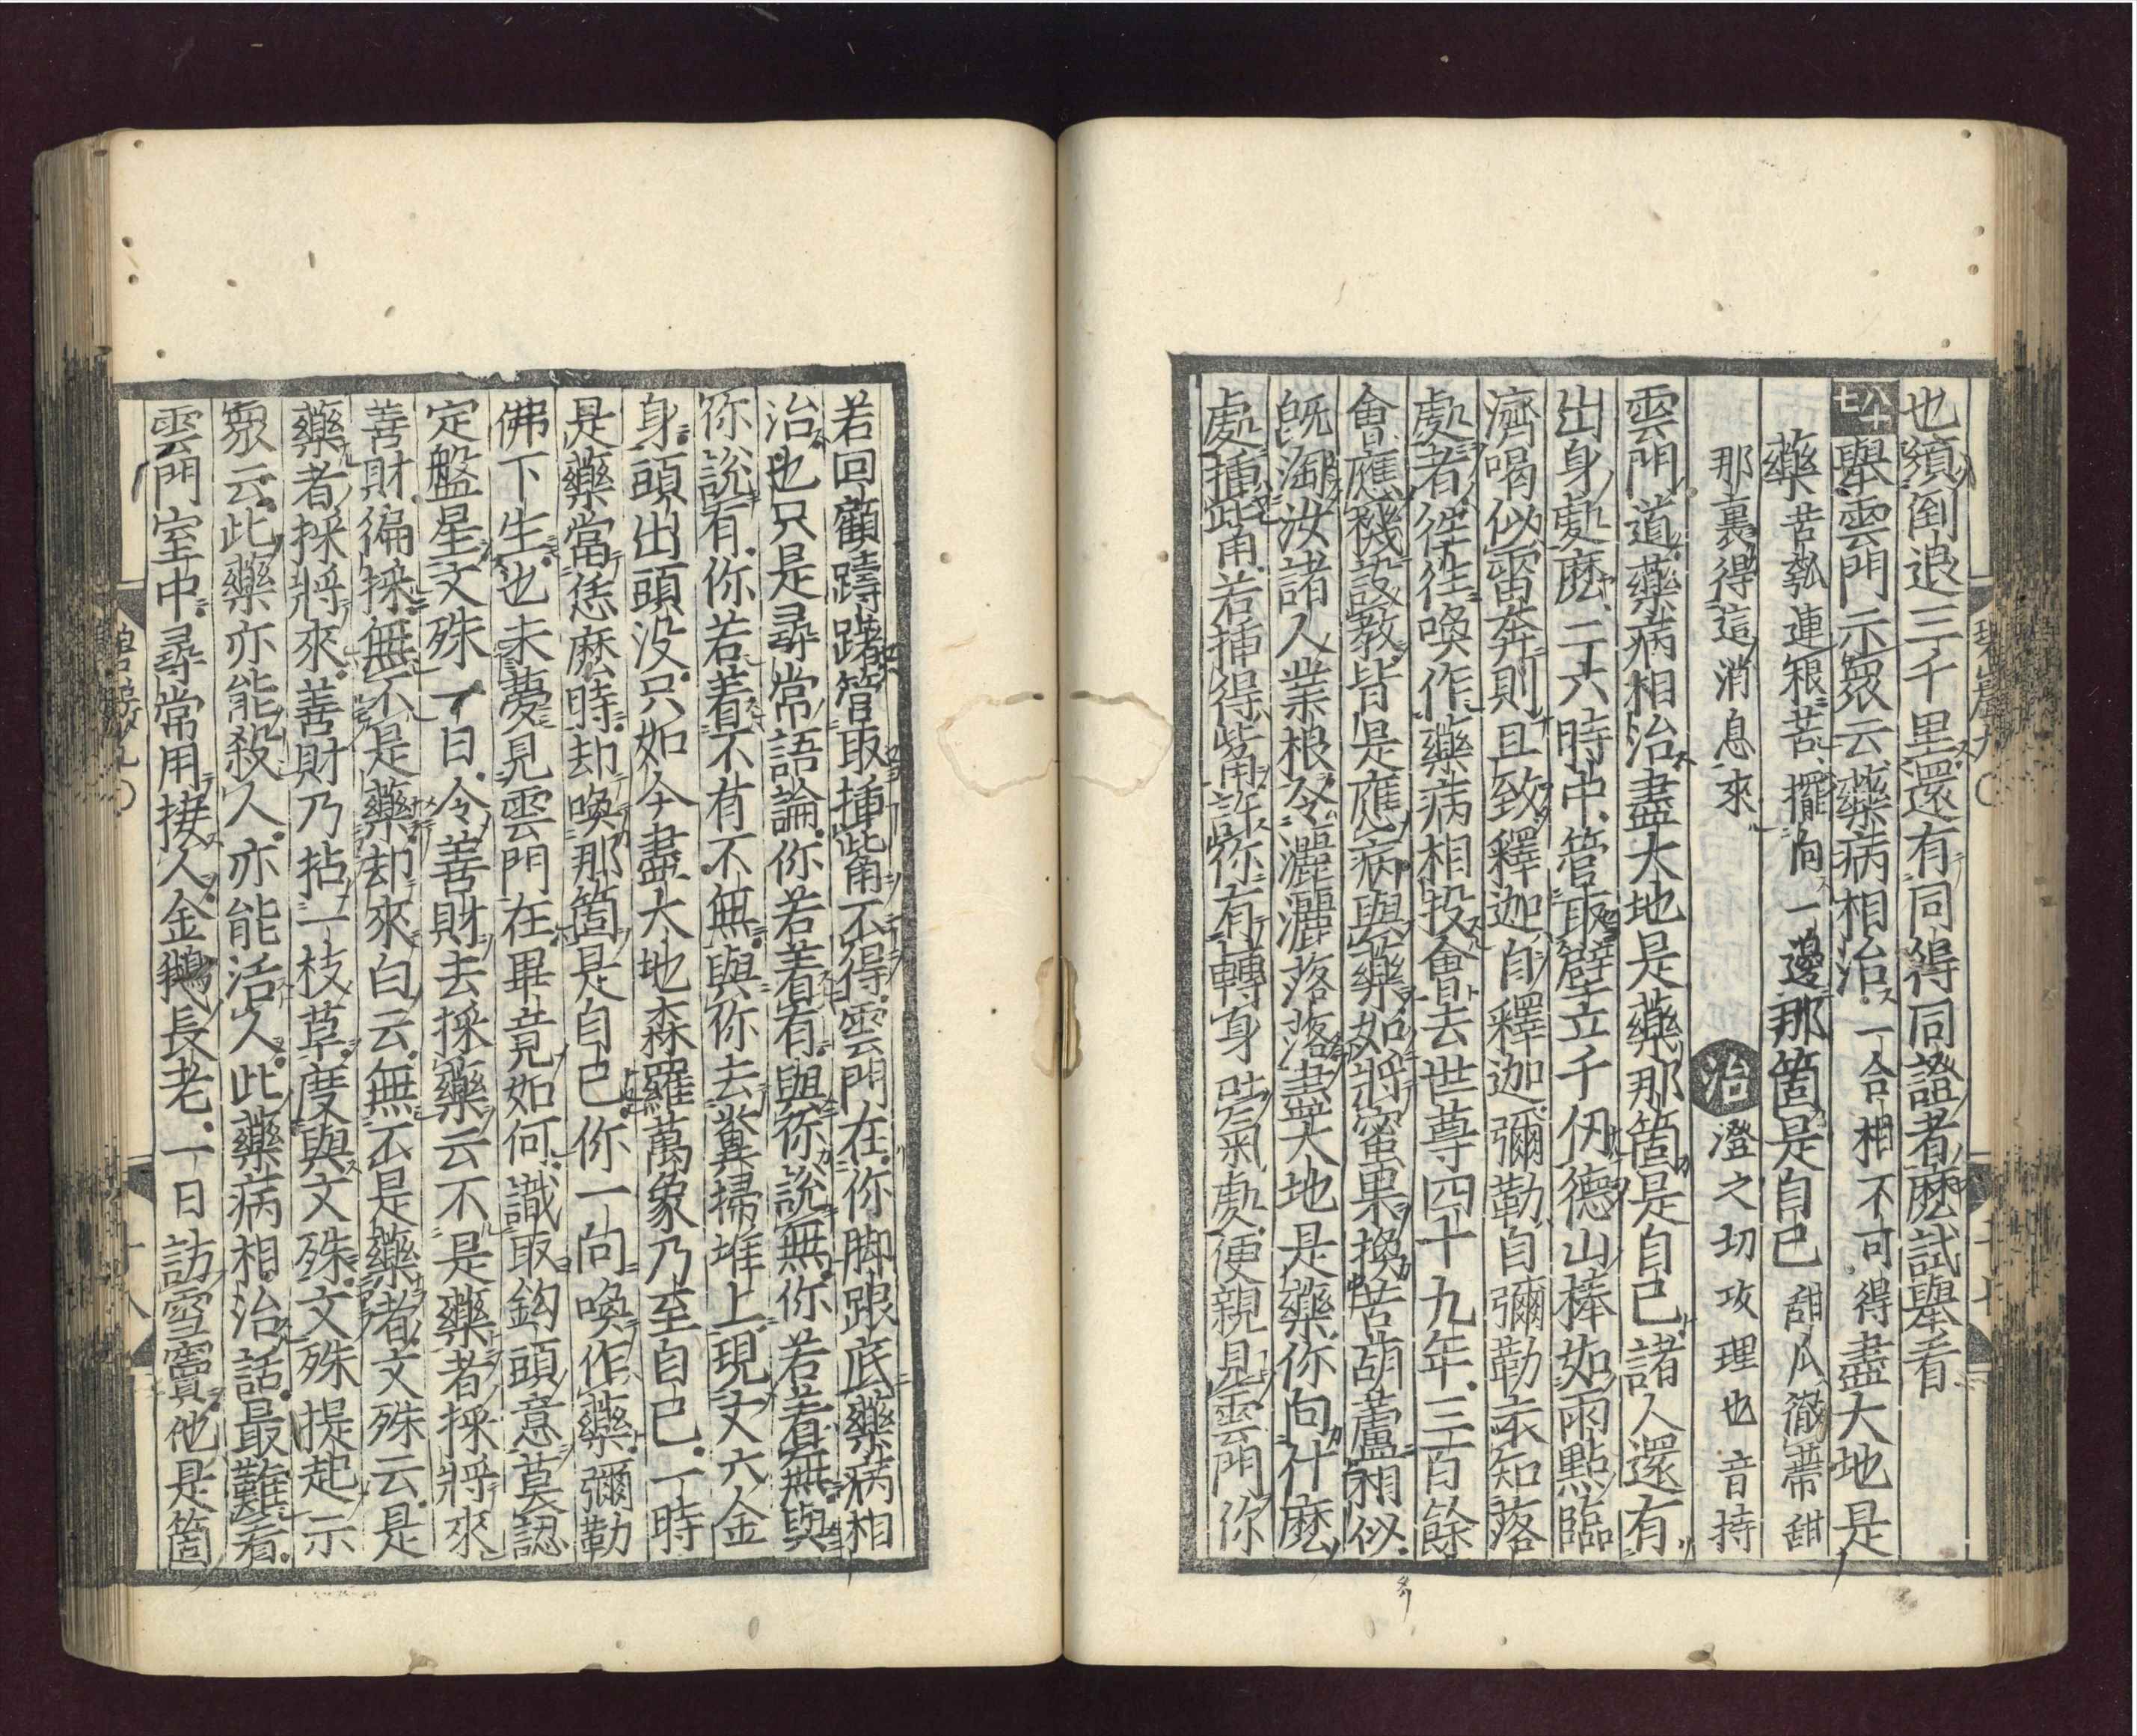 也須倒退三千里還有同得同證者麽試舉看
八十七
舉雲門示衆云藥病相治一合相不可得盡大地是
藥苦瓠連根苦擺向一邊那箇是自己甜瓜徹蔕甜
那裏得這消息來 治澄之切攻理也音持
雲門道藥病相治盡大地是藥那箇是自己諸人還有
出身處麽二六時中管取壁立千仞德山棒如雨點臨
濟喝似雷奔則且致釋迦自釋迦彌勒自彌勒未知落
處者徃徃喚作藥病相投會去世尊四十九年三百餘
會應機設教皆是應病與藥如將蜜果換苦葫蘆相似
旣淘汝諸人業根令灑灑落落盡大地是藥你向什麽
處揷觜若揷得觜許你有轉身吐氣處便親見雲門你
若回顧躊躇管取揷觜不得雲門在你脚跟底藥病相
治也只是尋常語論你若着有與你說無你若着無與
你說有你若着不有不無與你去糞掃堆上現丈六金
身頭出頭没只如今盡大地森羅萬象乃至自己一時
是藥當恁麽時却喚那箇是自己你一向喚作藥彌勒
佛下生也未夢見雲門在畢竟如何識取鈎頭意莫認
定盤星文殊一日令善財去採藥云不是藥者採將來
善財徧採無不是藥却來白云無不是藥者文殊云是
藥者採將來善財乃拈一枝草度與文殊文殊提起示
衆云此藥亦能殺人亦能活人此藥病相治話最難看
雲門室中尋常用接人金鵝長老一日訪雪竇他是箇